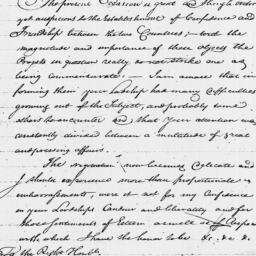 The present Occasion is great and though arduous
yet auspicious to the Establishment of Confidence and
Friendship between the two Countries; — tho' the
magnitude and importance of these objects the
Projects in question really do not strike one as
being commensurate; — I am aware that in
forming them your Lordship had many difficulties
growing out of the Subject, and probably some
others to encounter and that your attention was
constantly divided between a multitude of great
and pressing affairs.
The negociation now becomes delicate and
I should experience more than proportionate
embarrassments, were it not for my Confidence
in your Lordship's Candour and liberality, and for
those Sentiments of Esteem as well as of Respect
with which I have the honor to be &c. &c. &.
To the Right Honble